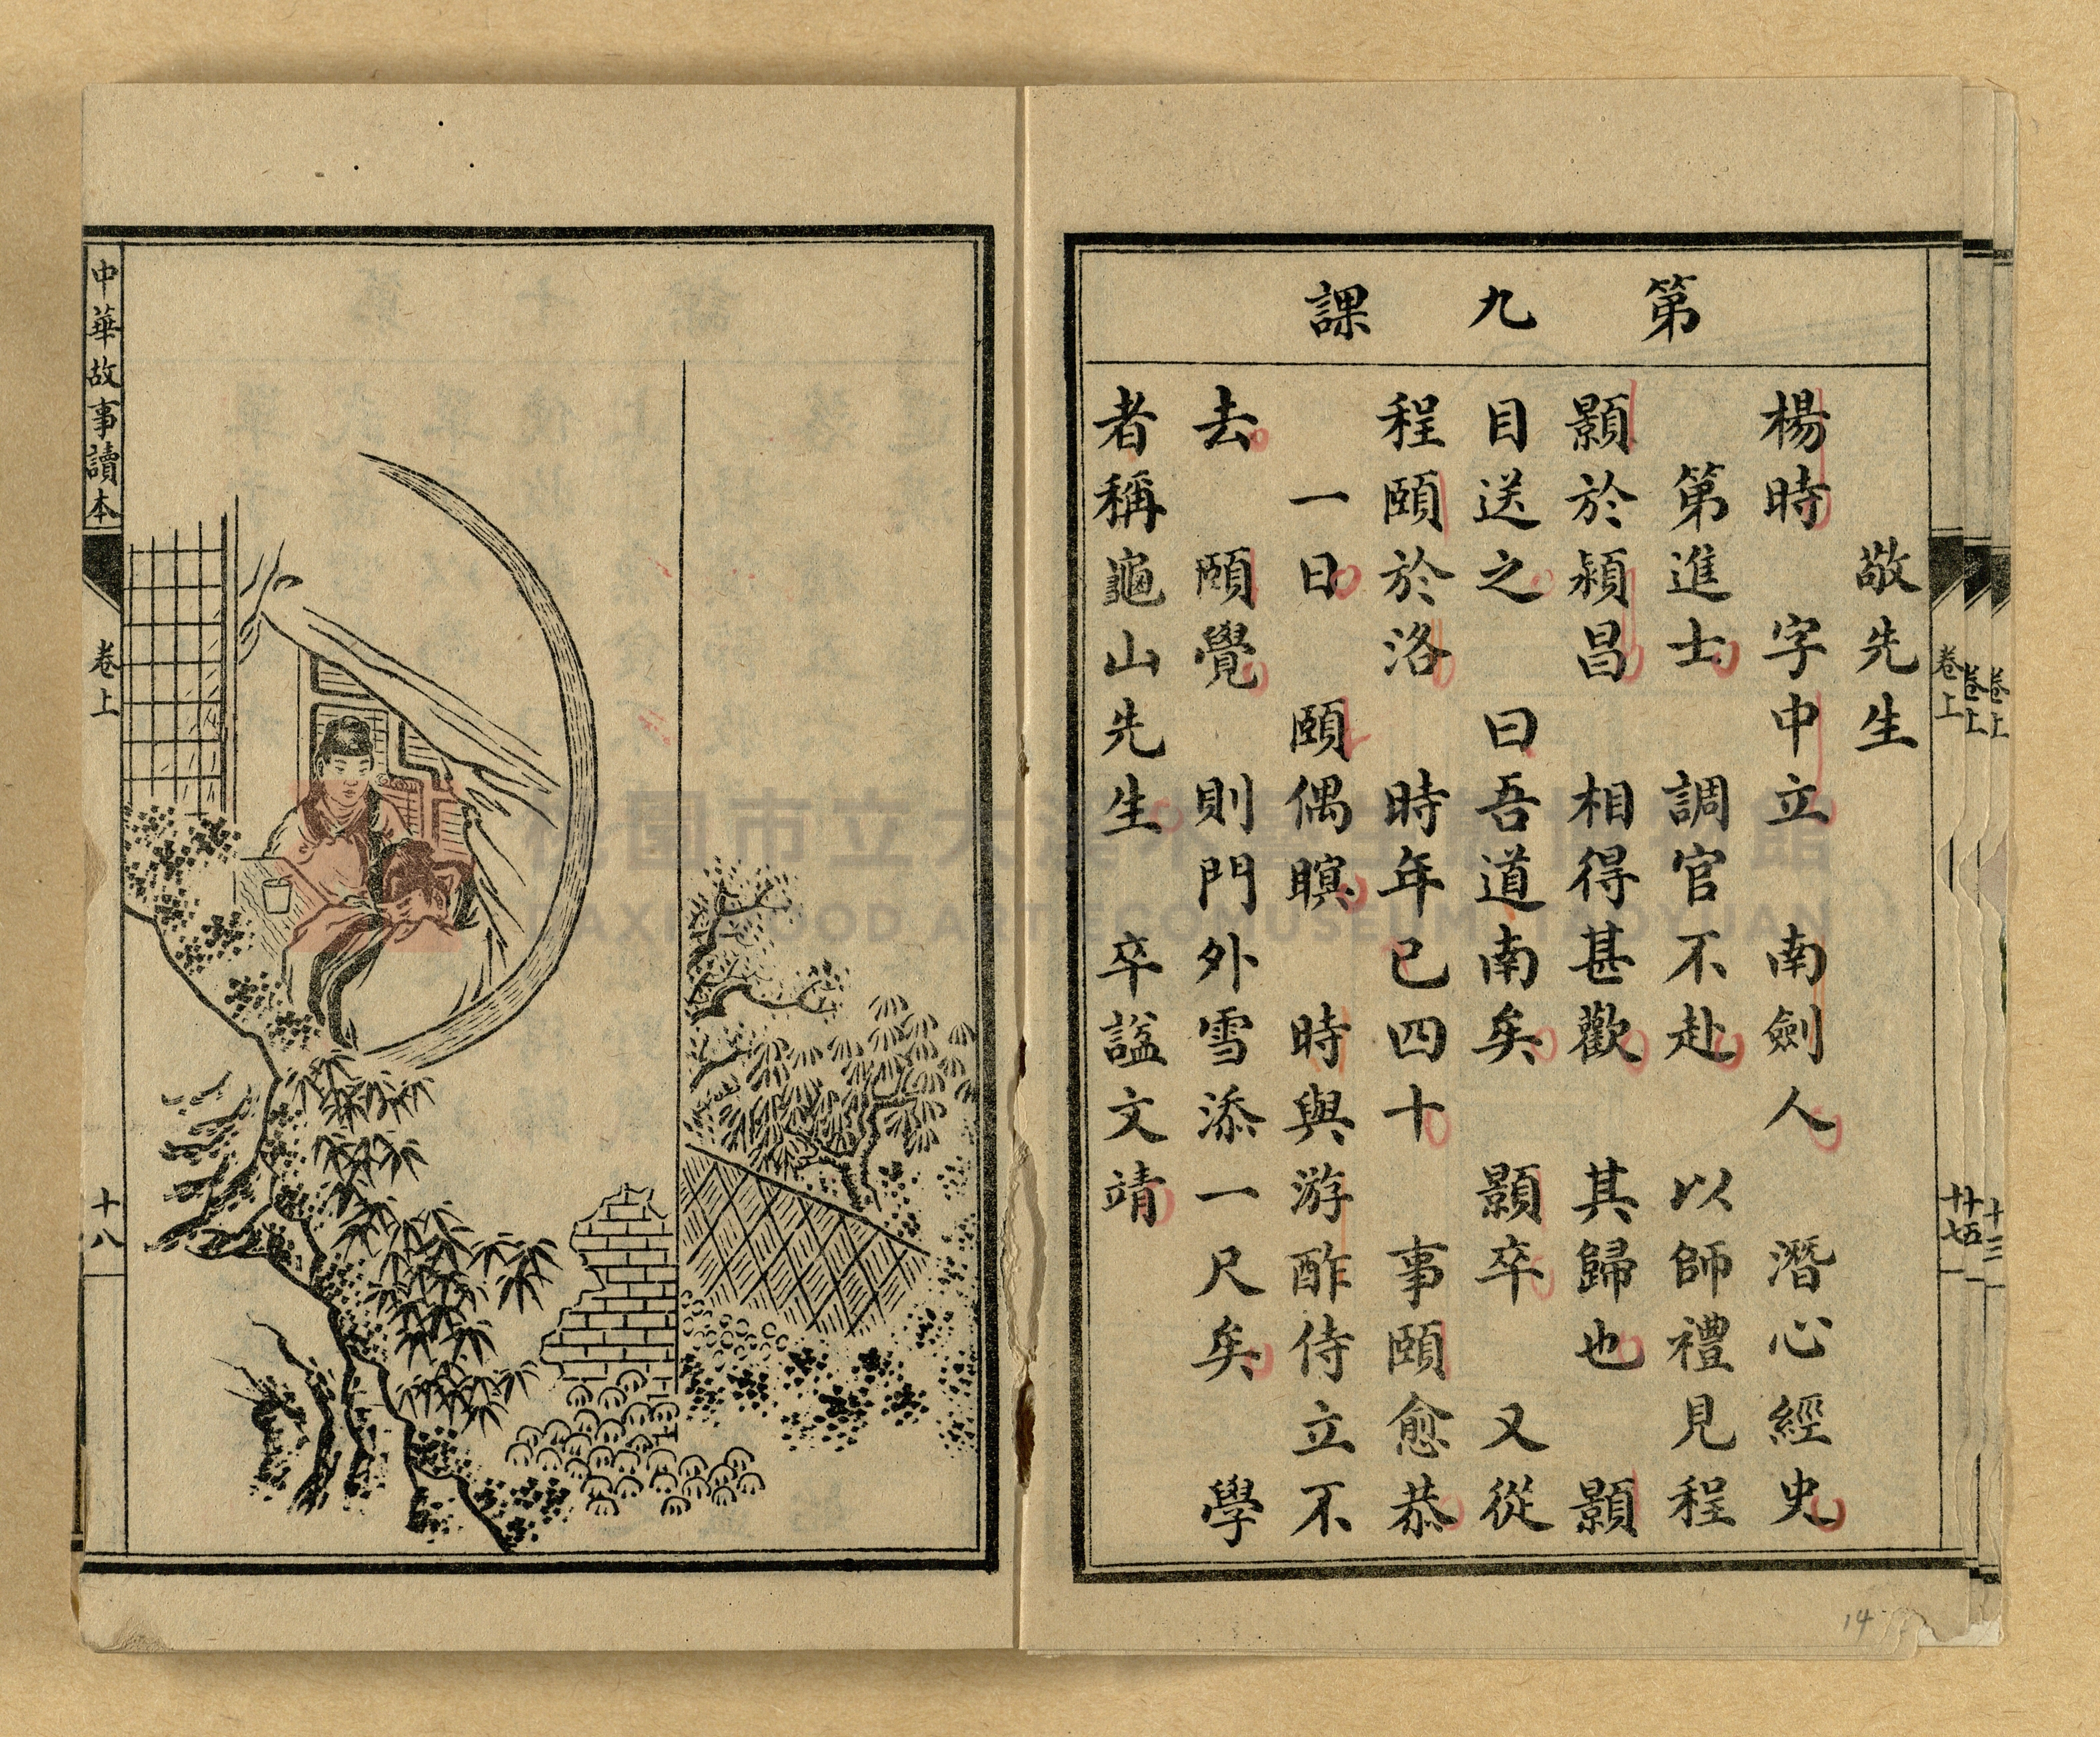 第九課
敬先生
楊時 字中立 南劍人 潛心經史
第進士 調官不赴 以師禮見程
顥於潁昌 相得甚歡 其歸也 顥
目送之 曰吾道南矣 顥卒 又從
程頤於洛 時年已四十 事頤愈恭
一日 頤偶瞑 時與游酢侍立不
去 頤覺 則門外雪添一尺矣 學
者稱龜山先生 卒諡文靖
卷上
十七
卷上
廿五
卷上
十三
14
中華故事讀本
卷上
十八
桃園市立大溪木藝生態博物館
DAXI WOOD ART ECOMUSEUM, TAOYUAN